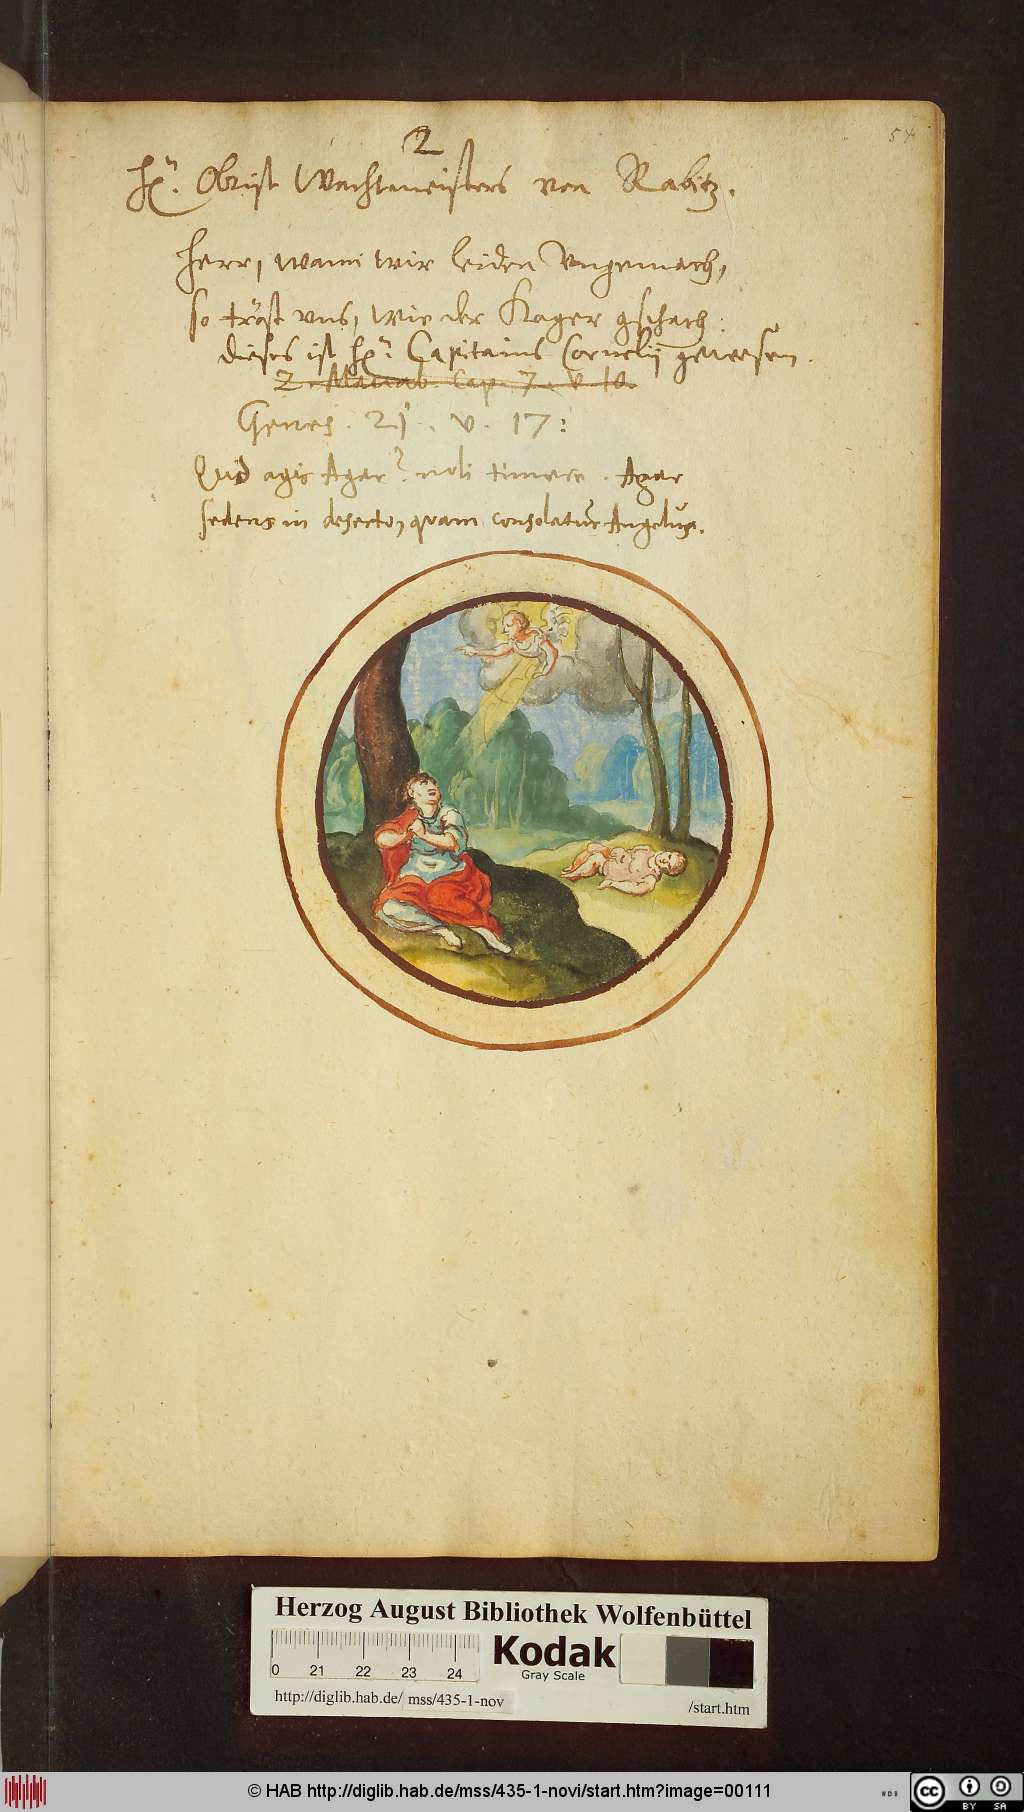 54
2
Hr. Obrist Wachtmeisters von Rabitz.
Herr, wann wir leiden Ungemach,
so tröst uns, wie der Hager gschach.
dieses ist Hr. Capitains Cornelij gewesen.
2. Maccab. Cap. 7. v. 10.
Genes. 21. v. 17:
Quid agis Agar? noli timere. Agar
sedens in deserto, quam consolatur Angelus.
Herzog August Bibliothek Wolfenbüttel
0 21 22 23 24
Kodak
Gray Scale
http://diglib.hab.de/ mss/435-1-nov /start.htm
© HAB http://diglib.hab.de/mss/435-1-novi/start.htm?image=00111
WDB
cc BY SA